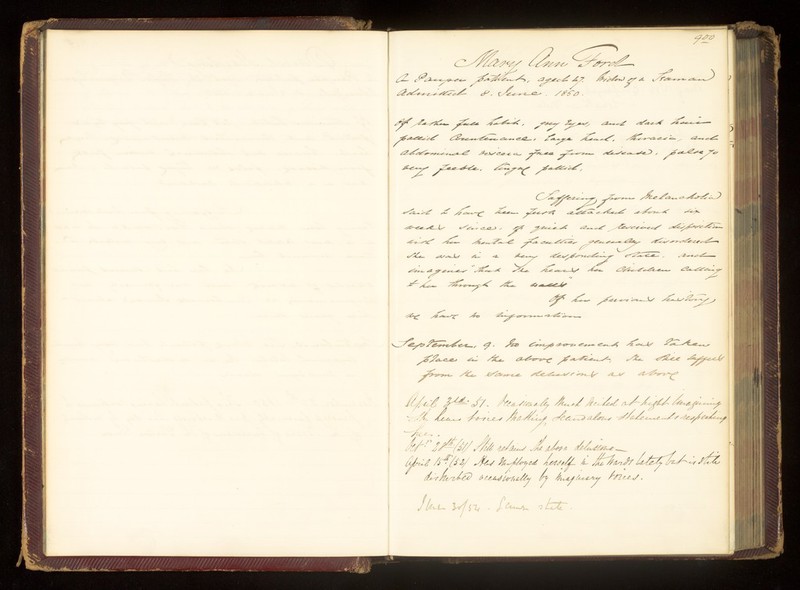 400
Mary Ann Ford
A Pauper patient, aged 47. Widow of a Seaman
Admitted 8. June. 1850.
Of rather full habit, grey eyes, and dark hair
pallid Countenance. large head, thoracic and
abdominal viscera free from disease. pulse 70
very feeble. tongue pallid.
Suffering from Melancholia
said to have been first attacked about six
weeks since. of quiet and reserved disposition
and her mental faculties generally disordered
She was in a very desponding state. and
imagines that she hears her Children Calling
to her through the walls
Of her previous history
we have no information
September 9. No improvement has taken
place in the above patient she still suffers
from the same delusions as above
April 51. Occasionally much excited at night imagining
she hears voices making scandalous statements respecting
her.
Octr 28th /51 Still retains the above delusions
April 15th /52 Has employed herself in the wards lately but is still
disturbed occasionally by imaginary voices.
June 30/52. Same state.